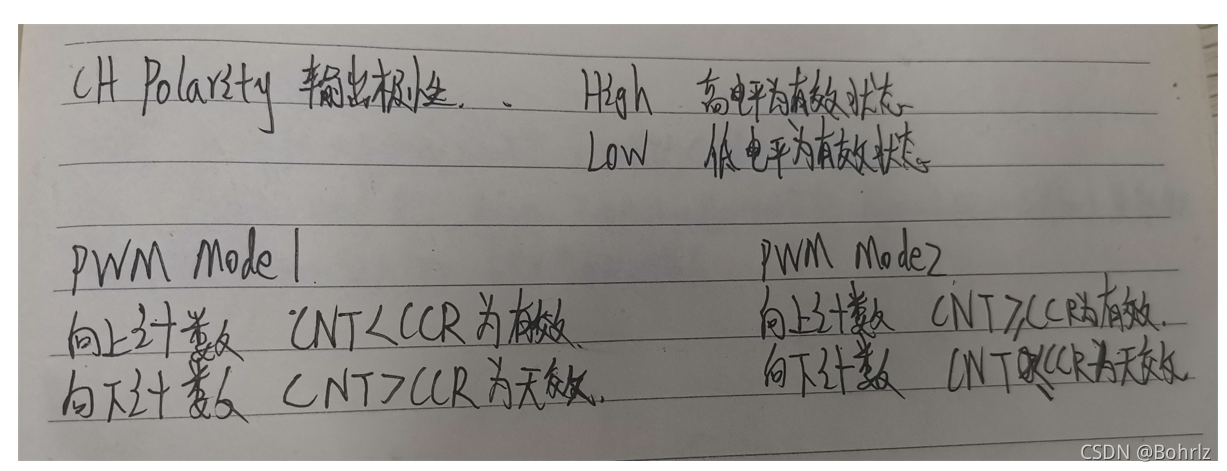 CH Polarity 输出极性. . High 高电平为有效状态
Low 低电平为有效状态
PWM Mode1 PWM Mode2
向上计数 CNT<CCR为有效. 向上计数 CNT≥CCR为有效.
向下计数 CNT>CCR为无效. 向下计数 CNT CCR为无效
CSDN @Bohrlz